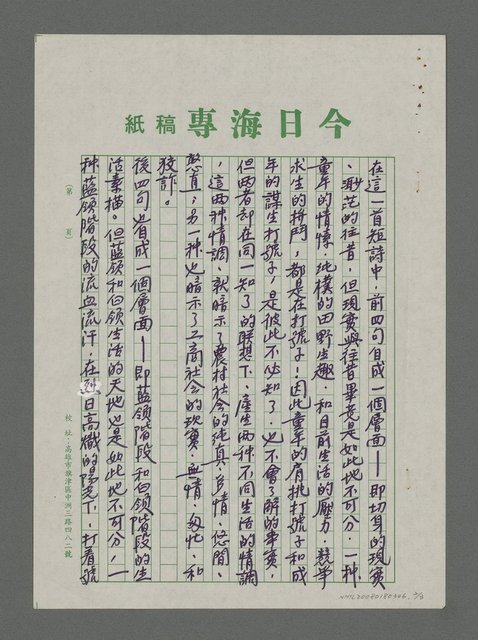 今日海專稿紙
在這一首短詩中，前四句自成一個層面——即切身的現實
、渺茫的往昔，但現實與往昔畢竟是如此地不可分，一种
童年的情愫，純樸的田野生趣，和目前生活的壓力，競爭
求生的拼鬥，都是在打號子！因此童年的肩挑打號子和成
年的謀生打號子，是彼此不必知了，也不會了解的事實，
但两者却在同一知了的联想下，產生两种不同生活的情調
，這两种情調，就暗示了農村社会的純真、多情、悠閒、
憨直，另一种也暗示了工商社会的現實、無情、匆忙、和
狡詐。
後四句也自成一個層面——即藍領階段和白領階段的生
活素描。但藍領和白領生活的天地也是如此地不可分，一
种藍領階段的流血流汗，在烈日高熾的陽光下，打着號
（第　頁）
校址：高雄市旗津區中洲三路四八二號
NMTL20080180306, 2/3